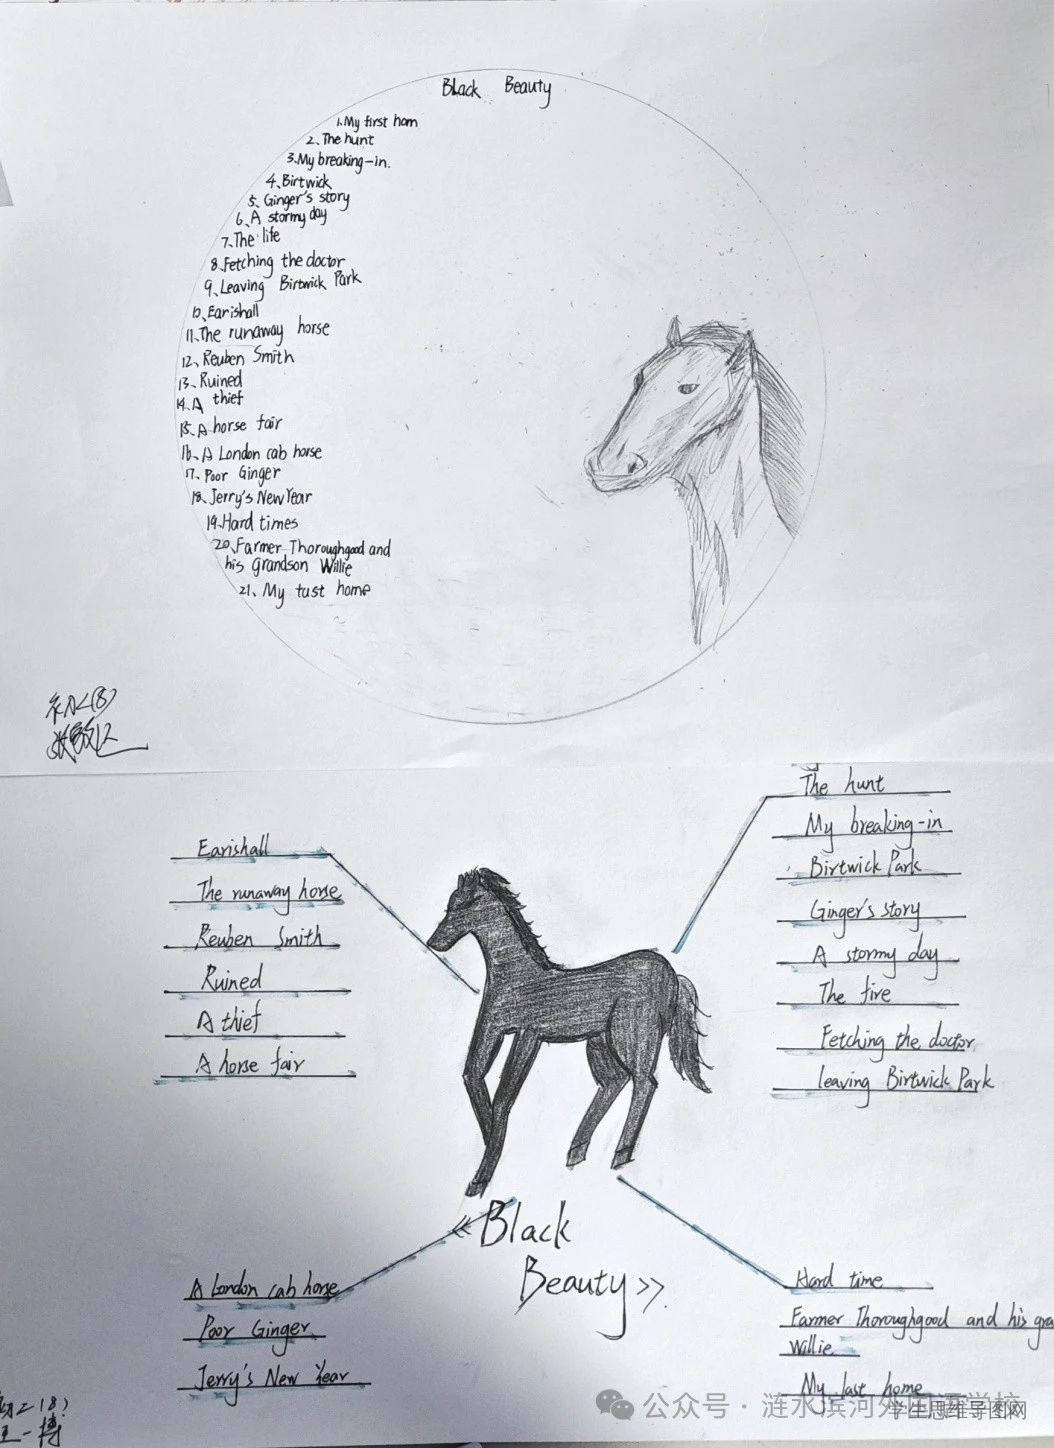 Black Beauty
1. My first hom
2. The hunt
3. My breaking-in.
4. Birtwick
5. Ginger's story
6. A stormy day
7. The life
8. Fetching the doctor
9. Leaving Birtwick Park
10. Earishall
11. The runaway horse
12. Reuben Smith
13. Ruined
14. A thief
15. A horse fair
16. A London cab horse
17. Poor Ginger
18. Jerry's New Year
19. Hard times
20. Farmer Thoroughgood and
his grandson Willie
21. My tast home
Earishall
The runaway horse
Reuben Smith
Ruined
A thief
A horse fair
The hunt
My breaking-in
Birtwick Park
Ginger's story
A stormy day
The fire
Fetching the doctor
leaving Birtwick Park
《Black
Beauty》.
A London cab horse
Poor Ginger
Jerry's New Year
Hard time
Farmer Thoroughgood and his gra
Willie
My last home
公众号 · 涟水滨河外国语学校
学生思维导图网